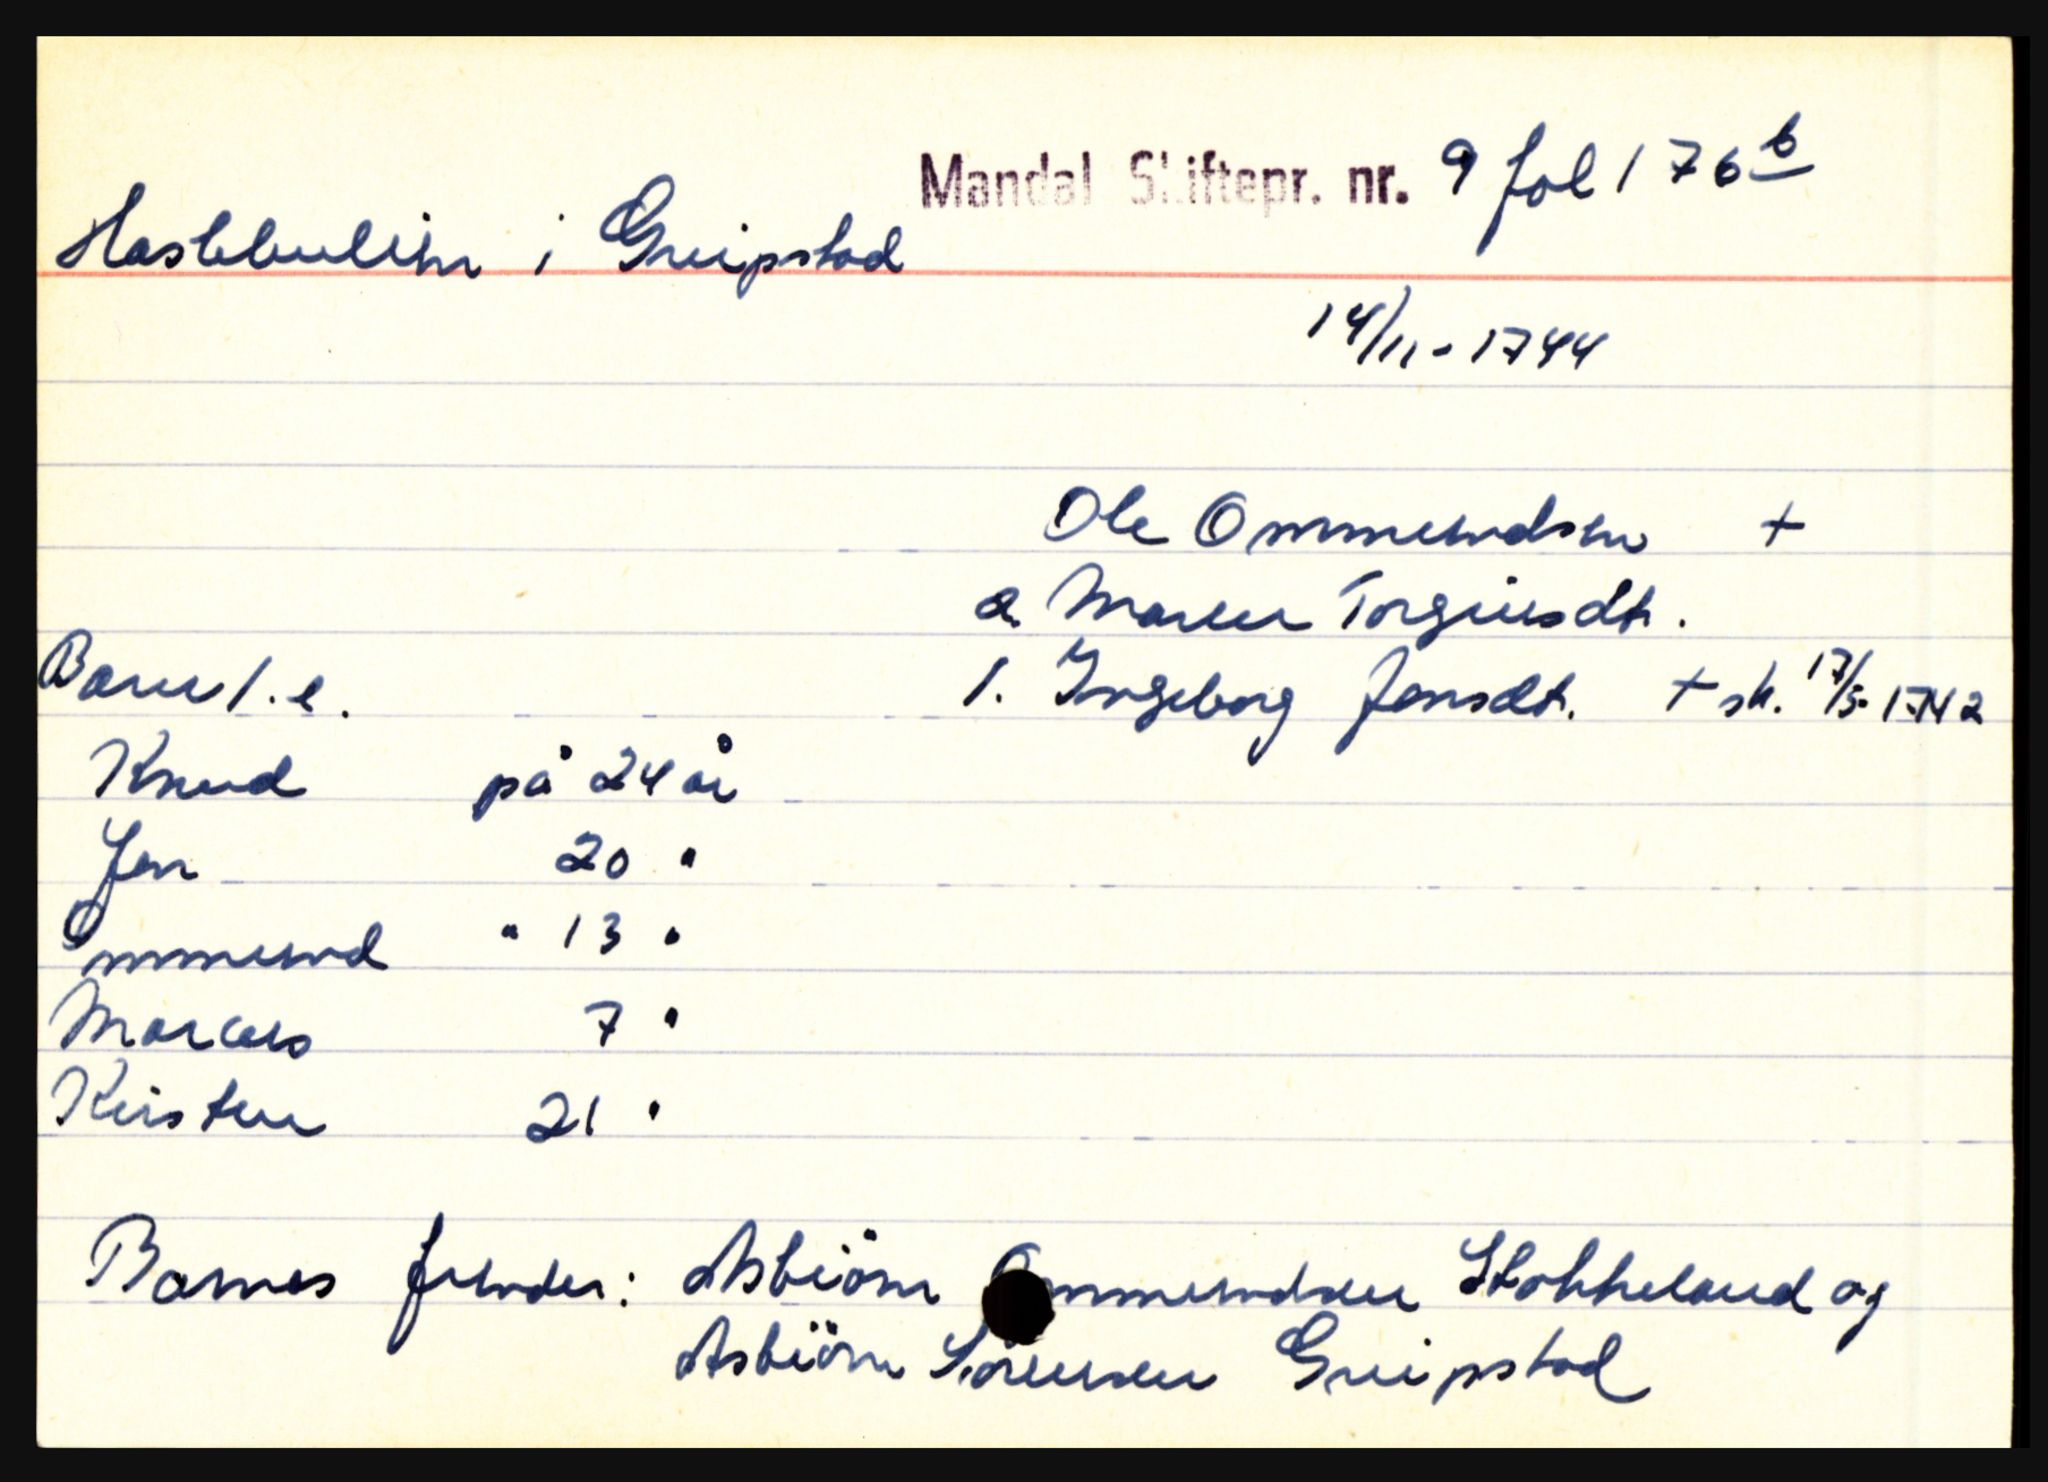 Mandal Skiftepr. nr. 9 fol 176 b
i Greipstad
14/11 - 1744
Ole Ommundsen +
2. Maren Torgiersdt.
Barn 1. e.
1. Ingeborg Jensdt. + sk. 17/5- 1742
Knud på 24 år
Jen 20 "
Ommund " 13 "
Marcus 7 "
Kirsten 21 "
Barnes frender: Asbiörn Ommundsen Stokkeland og
Asbiörn Sörensen Greipstad